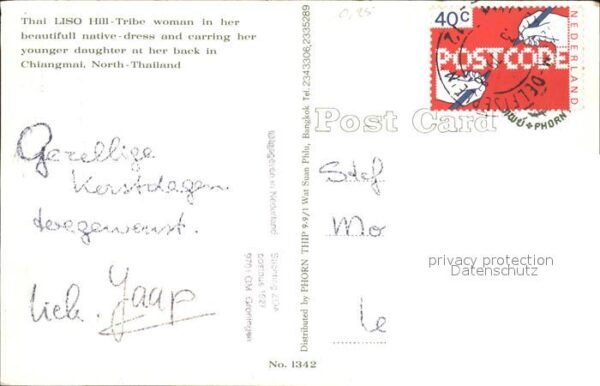 Thai LISO Hill-Tribe woman in her
beautifull native-dress and carring her
younger daughter at her back in
Chiangmai, North-Thailand
Gezellige
Kerstdagen
toegewenst.
Jaap
Distributed by PHORN THIP 9-9/1 Wat Suan Phlu, Bangkok Tel. 2343306, 2335289
No. 1342
40c
POSTCODE
NEDERLAND
PHORN
Post Card
Stef
Mo
le
privacy protection
Datenschutz
Stichting
postbus 1527
9701 GM Groningen